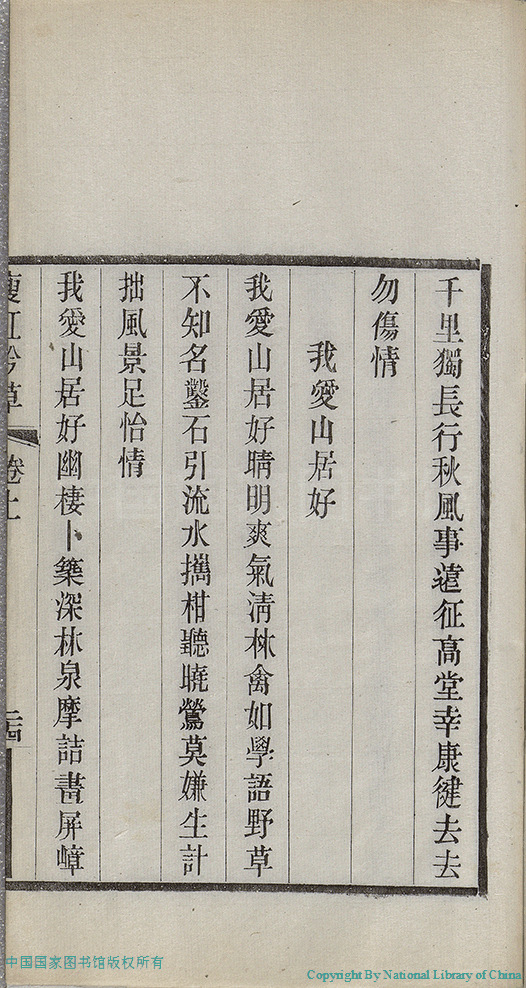 千里獨長行秋風事遠征高堂幸康健去去
勿傷情
我愛山居好
我愛山居好晴明爽氣淸林禽如學語野草
不知名鑿石引流水攜柑聽曉鶯莫嫌生計
拙風景足怡情
我愛山居好幽棲卜築深林泉摩詰畫屏嶂
瘦紅吟草
卷上
中国国家图书馆版权所有
Copyright By National Library of China